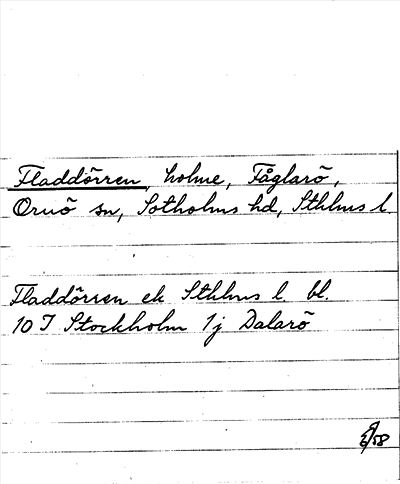 Fladdörren, holme, Fåglarö,
Ornö sn, Sotholms hd, Sthlms l.
Fladdörren ek Sthlms l. bl.
10 I Stockholm 1j Dalarö